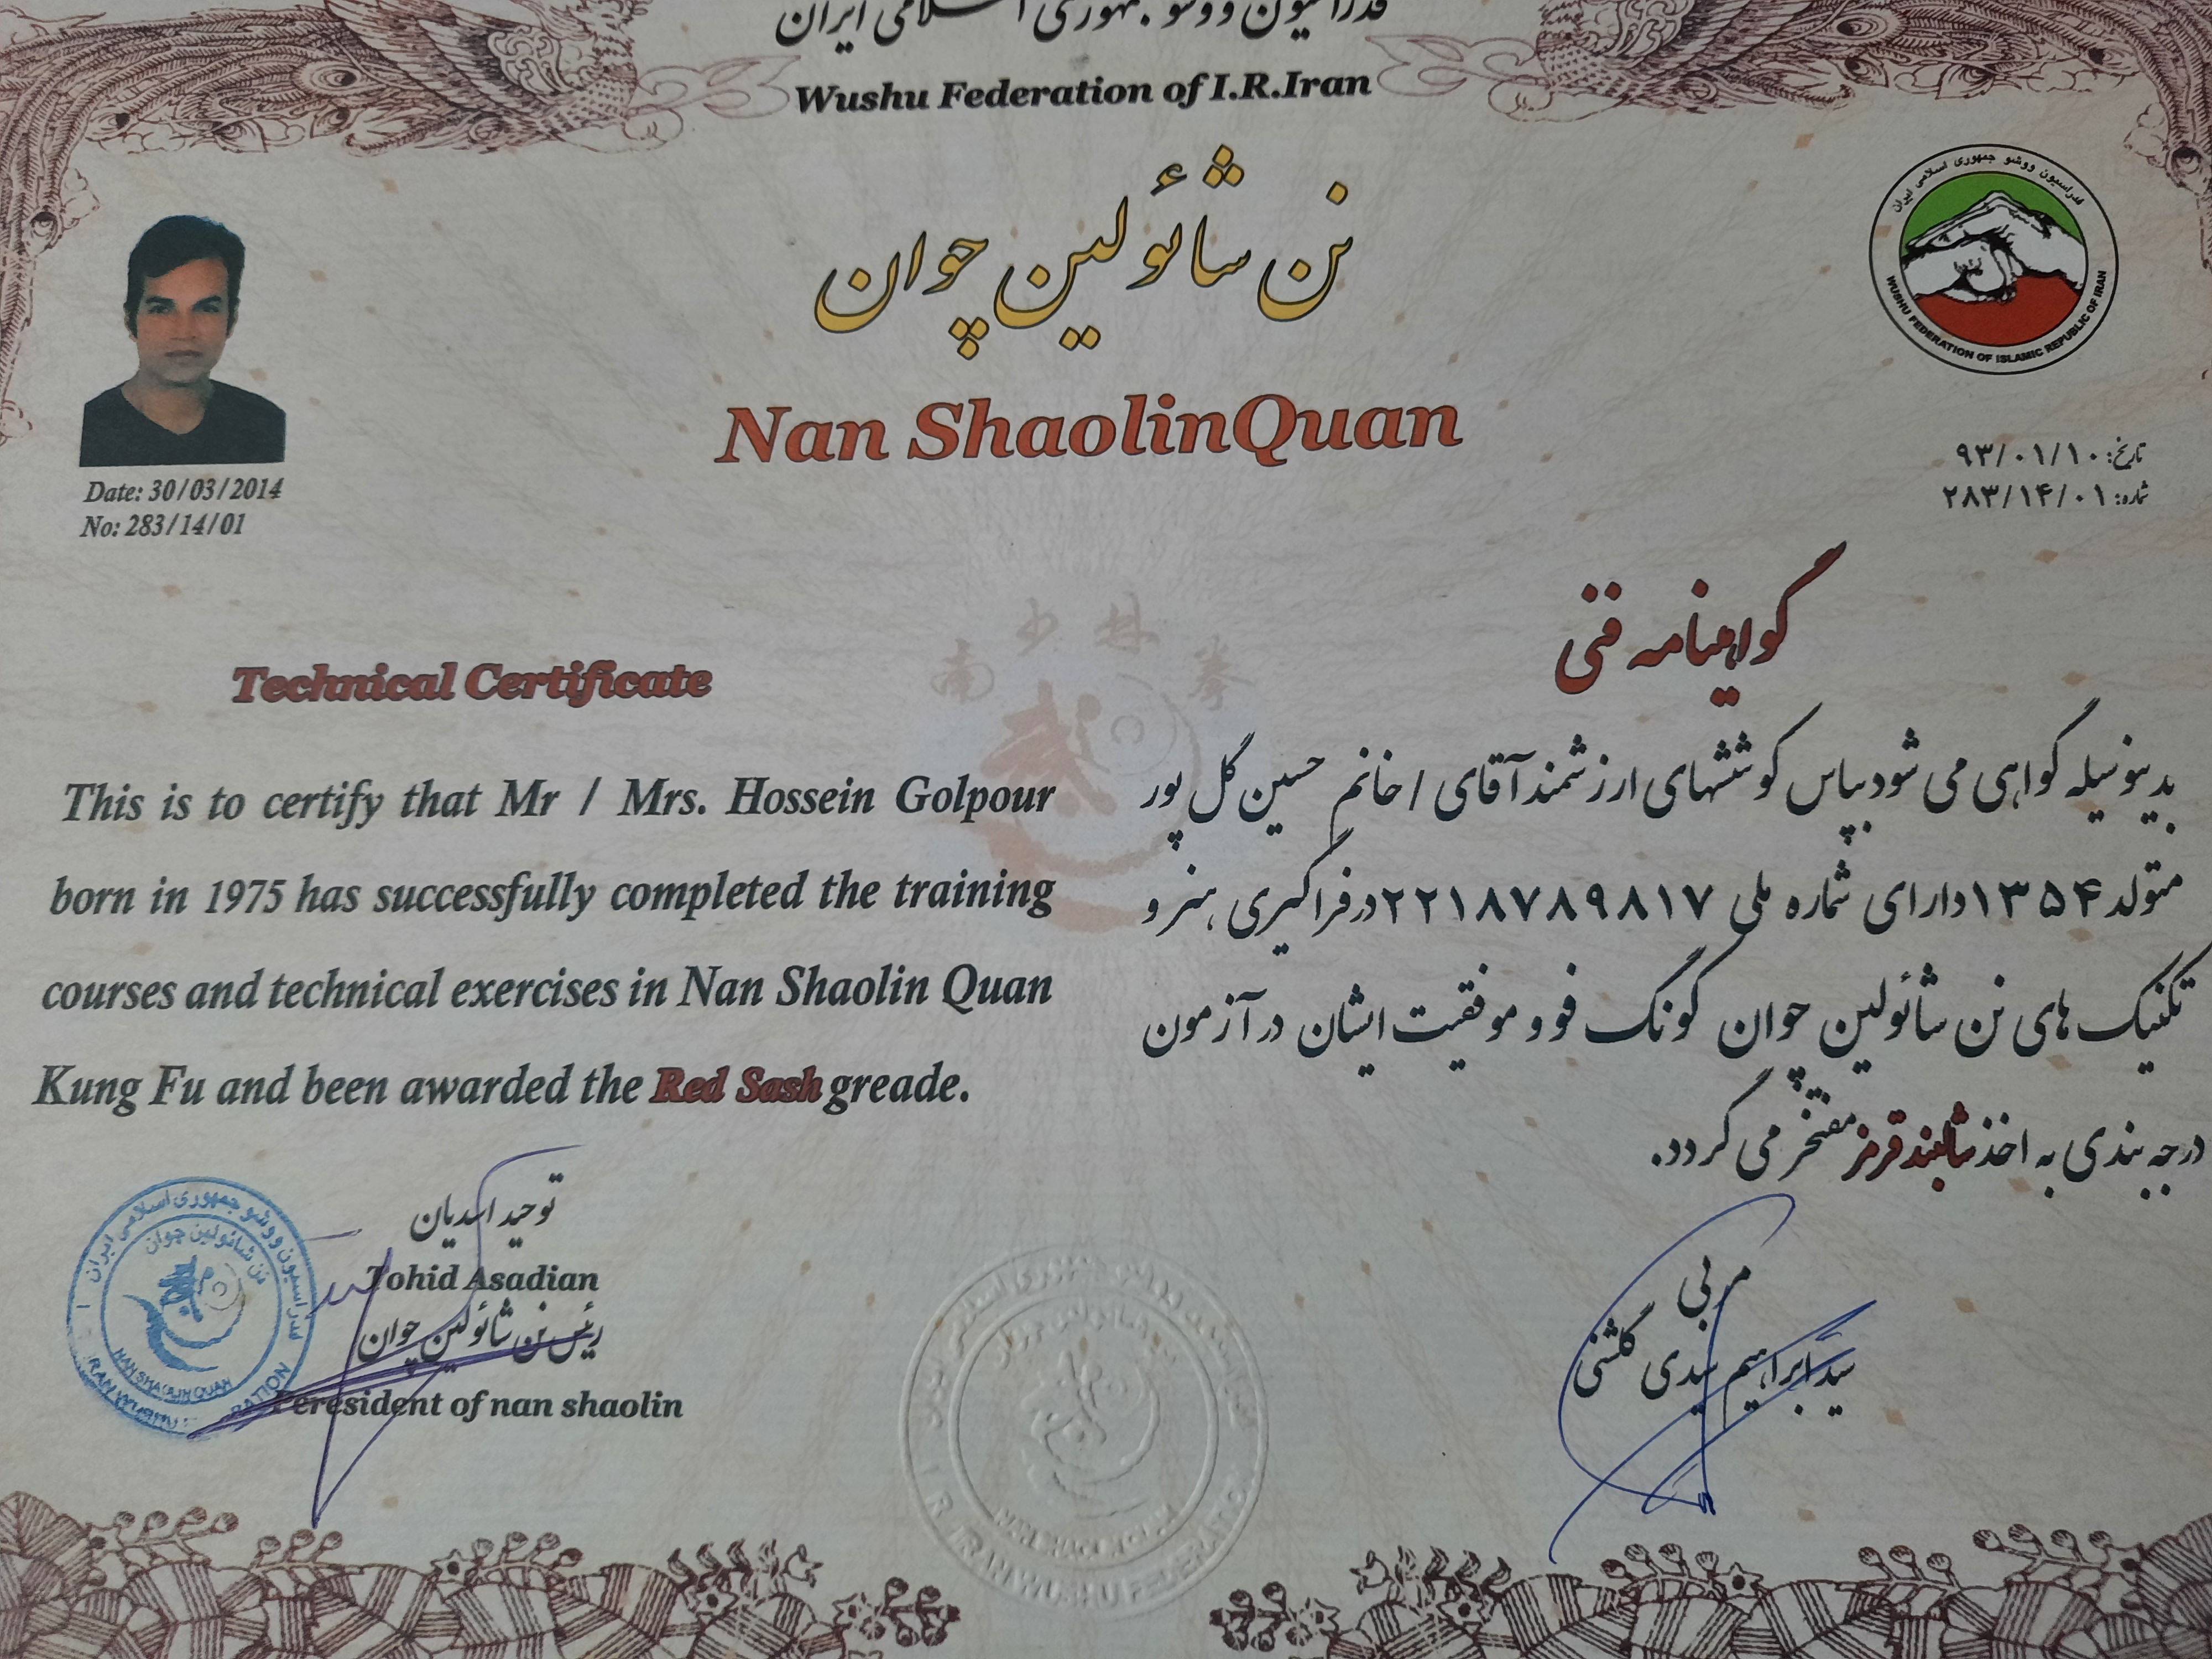 فدراسیون ووشو جمهوری اسلامی ایران
Wushu Federation of I.R.Iran
نن شائولین چوان
Nan ShaolinQuan
فدراسیون ووشو جمهوری اسلامی ایران
WUSHU FEDERATION OF ISLAMIC REPUBLIC OF IRAN
Date: 30/03/2014
No: 283/14/01
تاریخ: ۹۳/۰۱/۱۰
شماره: ۲۸۳/۱۴/۰۱
南少林拳
Technical Certificate
This is to certify that Mr / Mrs. Hossein Golpour
born in 1975 has successfully completed the training
courses and technical exercises in Nan Shaolin Quan
Kung Fu and been awarded the Red Sash greade.
گواهینامه فنی
بدینوسیله گواهی می شود بپاس کوششهای ارزشمند آقای / خانم حسین گل پور
متولد ۱۳۵۴ دارای شماره ملی ۲۲۱۸۷۸۹۸۱۷ در فراگیری هنر و
تکنیک های نن شائولین چوان کونگ فو و موفقیت ایشان در آزمون
درجه بندی به اخذ شالبند قرمز مفتخر می گردد.
توحید اسدیان
Tohid Asadian
رئیس نن شائولین چوان
Peresident of nan shaolin
فدراسیون ووشو جمهوری اسلامی ایران
نن شائولین چوان
NAN SHAOLIN QUAN
مربی
سید ابراهیم سیدی گلشنی
NAN SHAOLIN QUAN
I.R. IRAN WUSHU FEDERATION